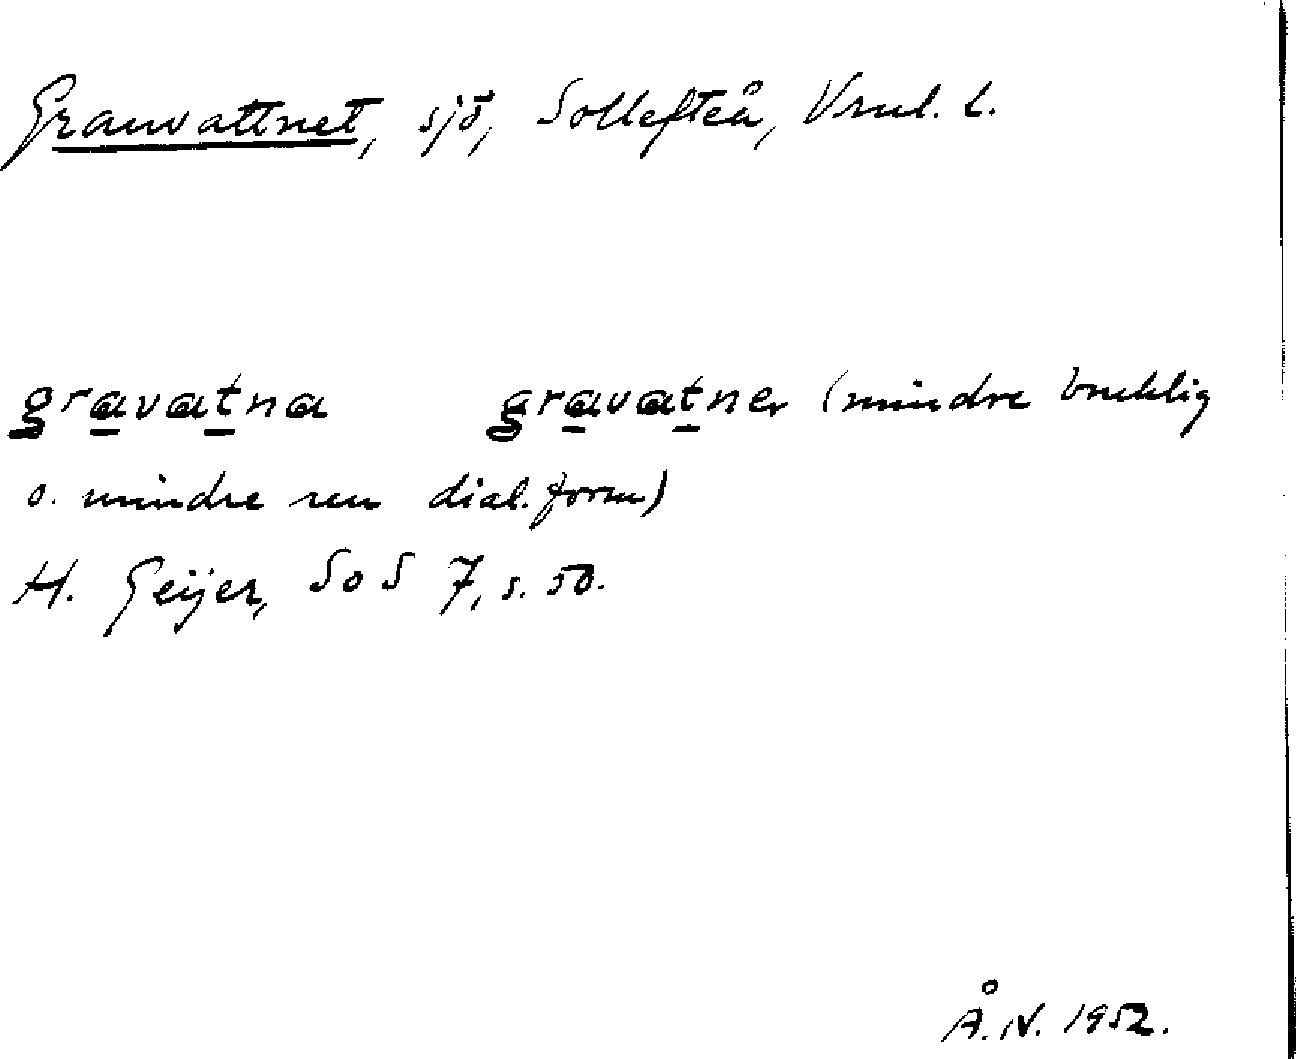 Granvattnet, sjö, Sollefteå, Vrnl. l.
gravatna gravatner (mindre bruklig
o. mindre ren dial.form)
H. Geijer, SoS 7, s. 50.
Å. N. 1952.